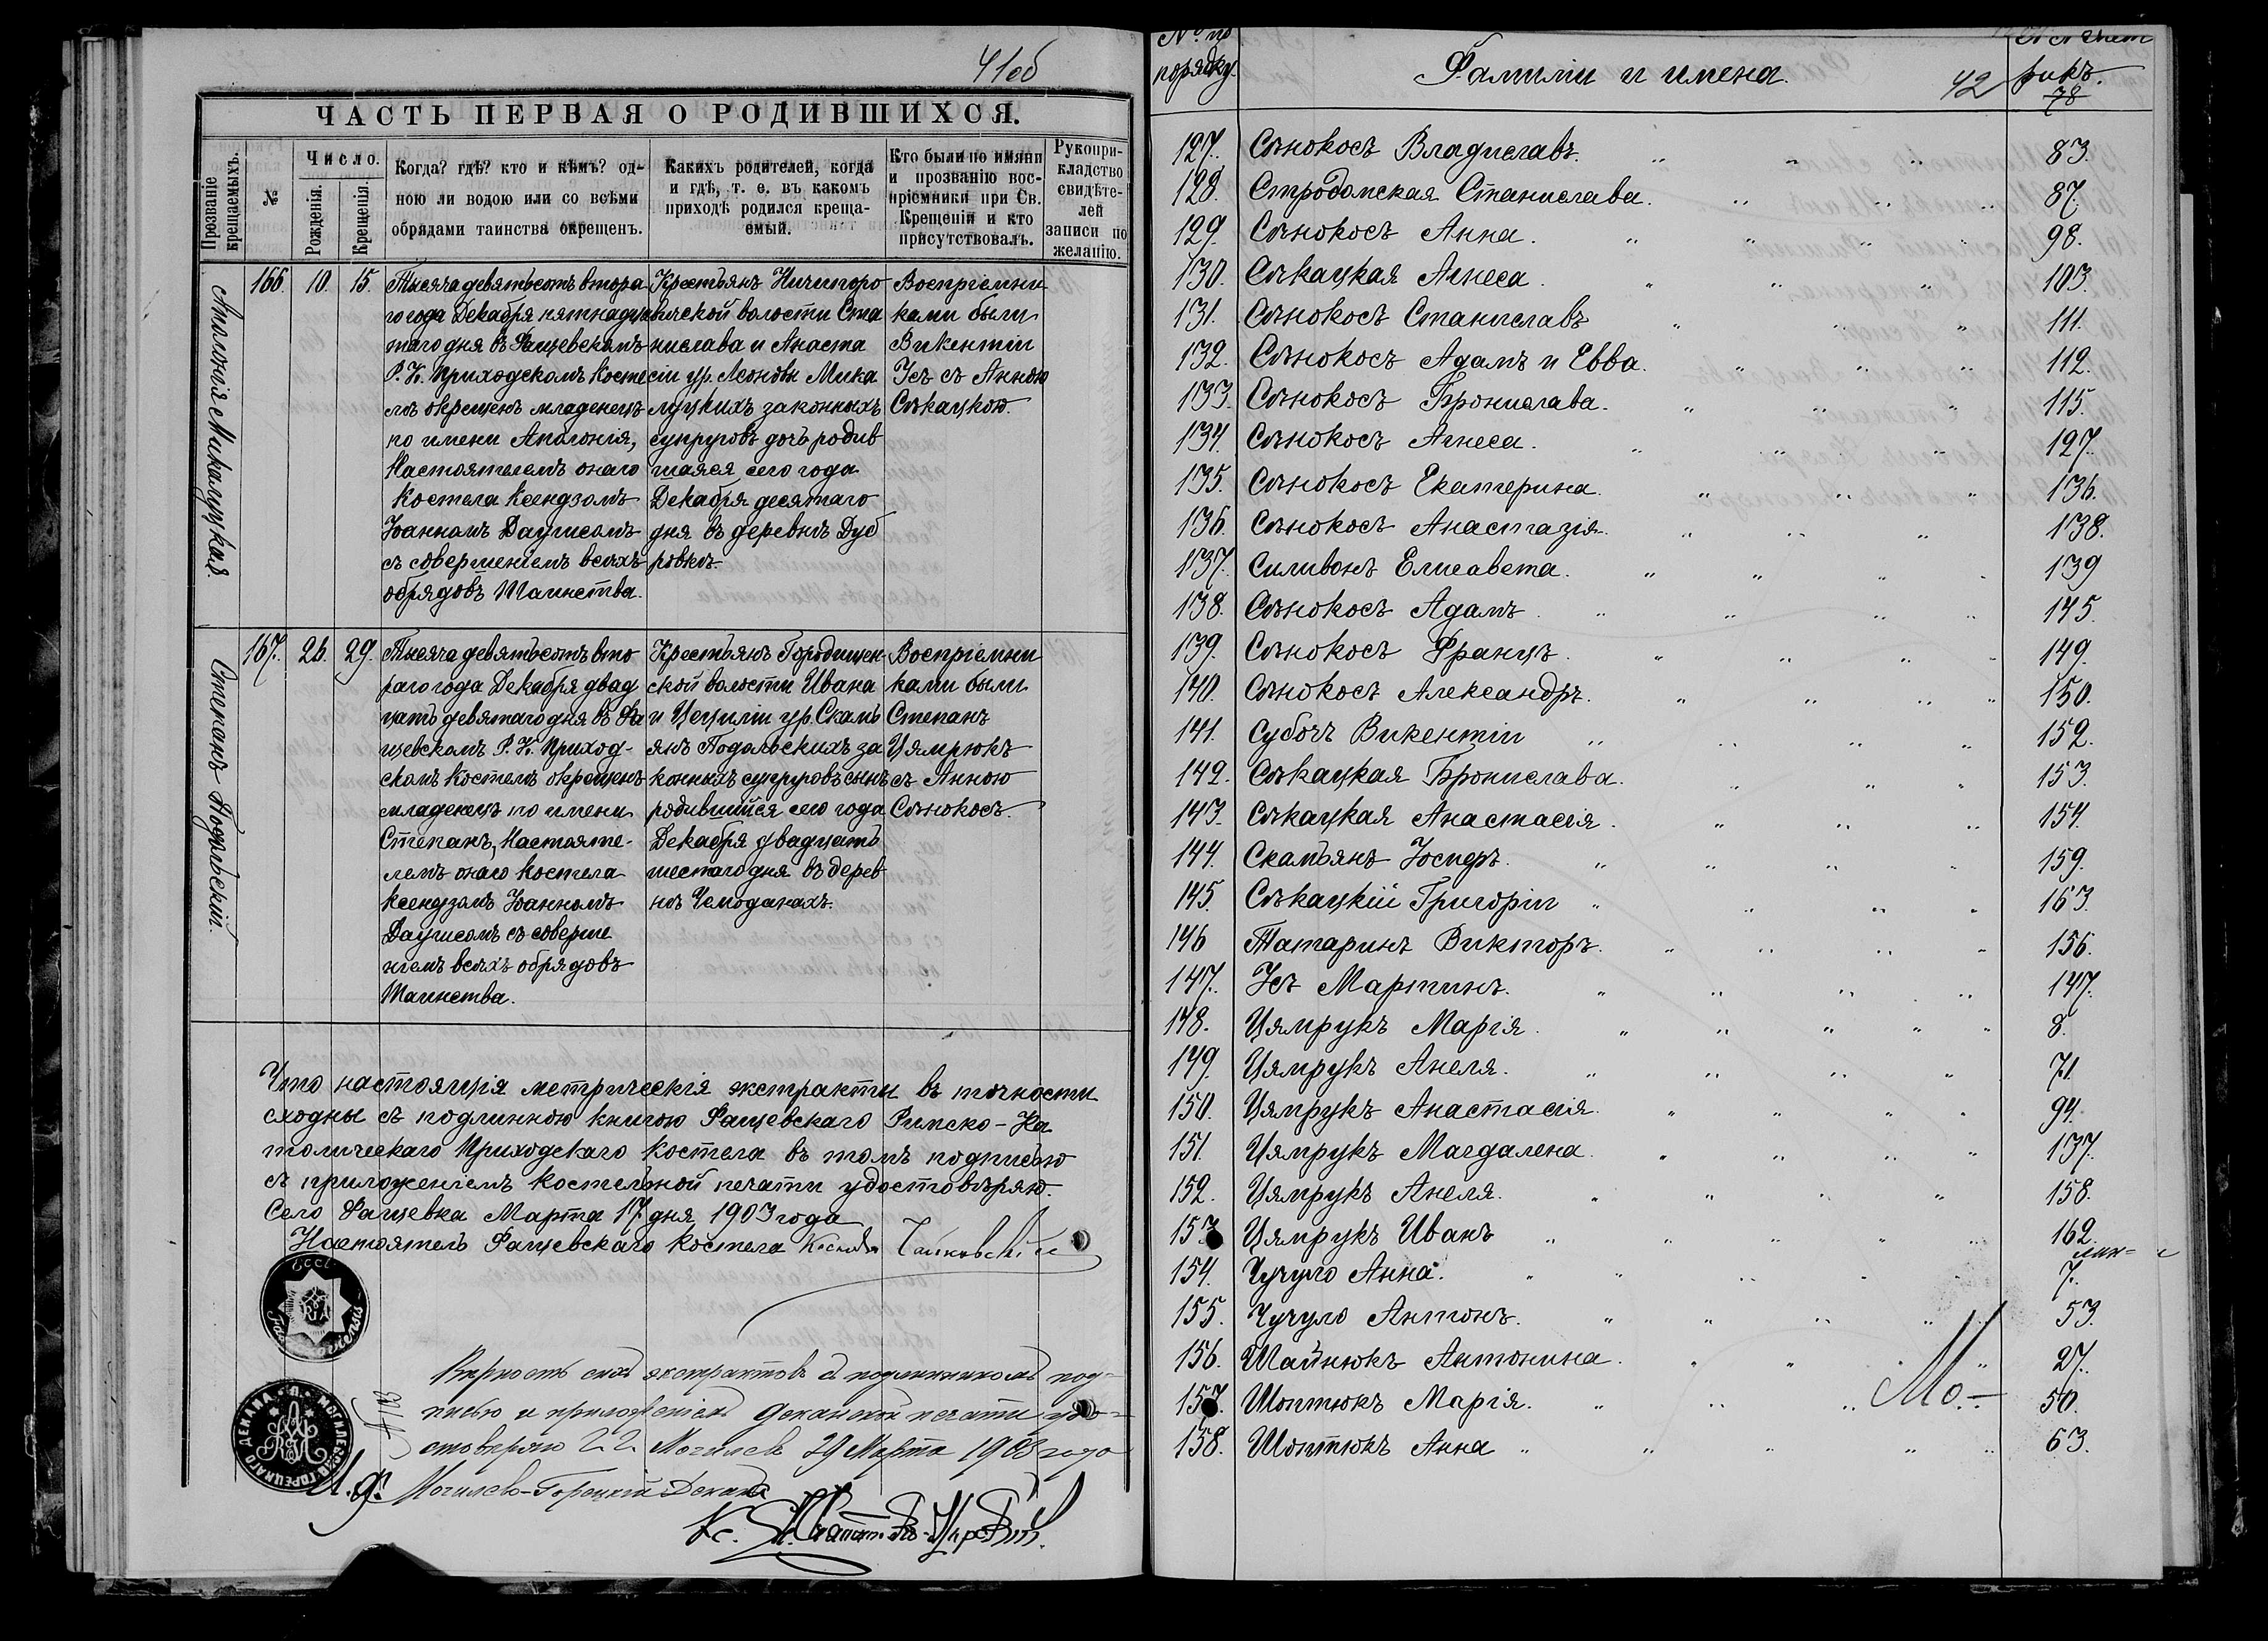 41об
ЧАСТЬ ПЕРВАЯ О РОДИВШИХСЯ.
Прозваніе крещаемыхъ.
№
Число.
Рожденія.
Крещенія.
Когда? гдѣ? кто и кѣмъ? од-
ною ли водою или со всѣми
обрядами таинства окрещенъ.
Какихъ родителей, когда
и гдѣ, т. е. въ какомъ
приходѣ родился креща-
емый.
Кто были по имяни
и прозванію вос-
пріемники при Св.
Крещеніи и кто
присутствовалъ.
Рукопри-
кладство
свидѣте-
лей
записи по
желанію.
Аполонія Микалуцкая.
166. 10. 15.
Тысяча девятьсотъ второ
го года Декабря пятнадца
таго дня въ Фащевскомъ
Р. К. Приходскомъ Косте
лѣ окрещенъ младенецъ
по имени Аполонія,
Настоятелемъ онаго
Костела Ксендзомъ
Іоанномъ Даугисомъ
съ совершеніемъ всѣхъ
обрядовъ Таинства.
Крестьянъ Ничипоро
вичской волости Ста
нислава и Анаста
сіи ур. Леоновы Мика
луцкихъ законныхъ
супруговъ дочь родив
шаяся сего года
Декабря десятаго
дня въ деревнѣ Дуб
ровкѣ.
Воспріемни
ками были
Викентій
Усъ съ Анною
Сѣкацкою.
Степанъ Подольскій.
167. 26. 29.
Тысяча девятьсотъ вто
раго года Декабря двад
цать девятаго дня въ Фа
щевскомъ Р. К. Приход-
скомъ Костелѣ окрещенъ
младенецъ по имени
Степанъ, Настояте-
лемъ онаго Костела
Ксендзомъ Іоанномъ
Даугисомъ съ соверше
ніемъ всѣхъ обрядовъ
Таинства.
Крестьянъ Городищен-
ской волости Ивана
и Цециліи ур. Скамь
янъ Подольскихъ за
конныхъ супруговъ сынъ
родившійся сего года
Декабря двадцать
шестаго дня въ дерев
нѣ Чемоданахъ.
Воспріемни
ками были
Степанъ
Цямрюкъ
съ Анною
Сѣнокосъ.
Что настоящія метрическія экстракты въ точности
сходны съ подлинною книгою Фащевскаго Римско-Ка
толическаго Приходскаго Костела въ томъ подписью
съ приложеніемъ костельной печати удостовѣряю.
Село Фащевка Марта 17 дня 1903 года
Настоятель Фащевскаго Костела Ксендзъ Чайковскій
Вѣрность сихъ экстрактовъ съ подлинникомъ под-
писью и приложеніемъ деканской печати удо-
стовѣряю г. Могилевъ 29 Марта 1903 года
И. д. Могилево-Горецкій Деканъ
Кс.
№ по
порядку.
Фамиліи и имена.
42
№№ мет
рикъ.
78
127. Сѣнокосъ Владиславъ. 83.
128. Стродомская Станислава. 87.
129. Сѣнокосъ Анна. 98.
130. Сѣкацкая Агнеса. 103.
131. Сѣнокосъ Станиславъ 111.
132. Сѣнокосъ Адамъ и Евва. 112.
133. Сѣнокосъ Бронислава. 115.
134. Сѣнокосъ Агнеса. 127.
135. Сѣнокосъ Екатерина. 136.
136. Сѣнокосъ Анастазія. 138.
137. Силивонъ Елисавета. 139
138. Сѣнокосъ Адамъ. 145.
139. Сѣнокосъ Францъ. 149.
140. Сѣнокосъ Александръ. 150.
141. Субочъ Викентій 152.
142. Сѣкацкая Бронислава. 153.
143. Сѣкацкая Анастасія. 154.
144. Скамьянъ Іосифъ. 159.
145. Сѣкацкій Григорій 163.
146 Татаринъ Викторъ. 156.
147. Усъ Мартинъ. 147.
148. Цямрукъ Марія. 8.
149. Цямрукъ Анеля. 71.
150. Цямрукъ Анастасія. 94.
151. Цямрукъ Магдалена. 137.
152. Цямрукъ Анеля. 158.
153 Цямрукъ Иванъ 162.
154. Чучуло Анна. 7.
155. Чучуло Антонъ. 53.
156. Шайнюкъ Антонина. 27.
157. Шоптюкъ Марія. 50.
158. Шоптюкъ Анна 63.